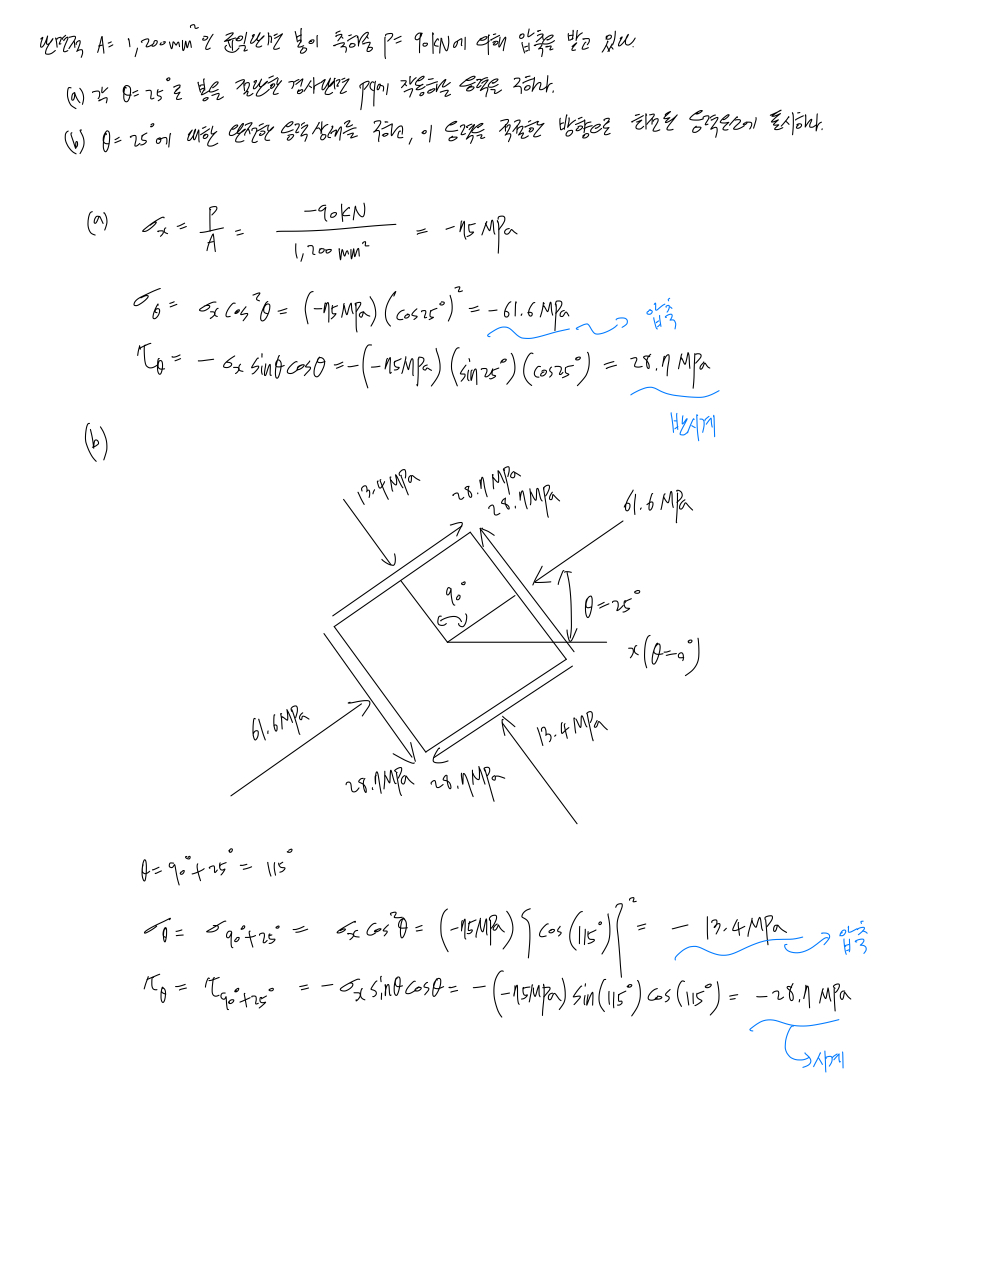 단면적 A = 1,200mm²인 균일단면 봉이 축하중 P = 90kN에 의해 압축을 받고 있다.
(a) 각 θ=25°로 봉을 절단한 경사단면 pq에 작용하는 응력을 구하라.
(b) θ=25°에 대한 완전한 응력상태를 구하고, 이 응력을 적절한 방향으로 회전된 응력요소에 표시하라.
(a) σx = P/A = -90kN/1,200mm² = -75 MPa
σθ = σx cos²θ = (-75MPa)(cos25°)² = -61.6MPa 압축
τθ = -σx sinθcosθ = -(-75MPa)(sin25°)(cos25°) = 28.7 MPa
반시계
(b)
13.4MPa
28.7MPa
28.7MPa
61.6MPa
90°
θ=25°
x(θ=0°)
61.6MPa
13.4MPa
28.7MPa 28.7MPa
θ=90°+25° = 115°
σθ = σ90°+25° = σx cos²θ = (-75MPa){cos(115°)}² = -13.4MPa 압축
τθ = τ90°+25° = -σx sinθcosθ = -(-75MPa)sin(115°)cos(115°) = -28.7MPa
시계